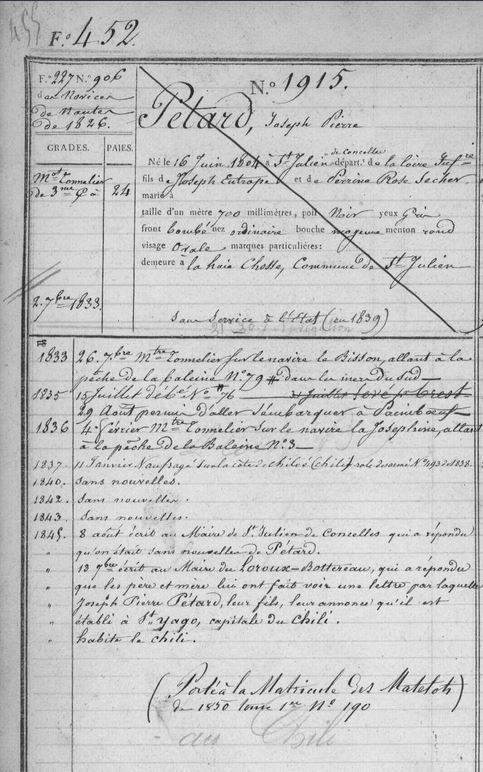 F.o 452.
F.o 227 N.o 906
des Novices
de Nantes
de 1826.
N.o 1915.
Pétard, Joseph Pierre
GRADES. PAIES.
Mtre Tonnelier
de 3me Cl 24
2. 7bre 1833.
de Concelles
Né le 16 Juin 1804 à St Julien départ.t de la Loire Infre
fils de Joseph Eutrope et de Perrine Rose Secher
marié à
taille d'un mètre 700 millimètres, poil Noir yeux Gris
front bombé nez ordinaire bouche moyenne menton rond
visage Ovale marques particulières:
demeure à la haie Chotte, Commune de St Julien
Sans Service à l'État (en 1839)
1833 26. 7bre Mtre Tonnelier sur le navire le Bisson, allant à la
pêche de la baleine N.o 79 dans les mers du Sud
1835 15 Juillet N.o 76
29 Août permis d'aller s'embarquer à Paimboeuf
1836 4 Février Mtre Tonnelier sur le navire la Joséphine, allant
à la pêche de la Baleine N.o 3
1837. 11 Janvier Naufragé sur la côte de chiloé (Chili) role désarmé N.o 193 de 1838.
1840. Sans nouvelles.
1842. Sans nouvelles.
1843. Sans nouvelles.
1845. 8 août écrit au Maire de St Julien de Concelles qui a répondu
" qu'on était sans nouvelles de Pétard.
" 13 7bre écrit au Maire du Loroux-Bottereau, qui a répondu
que les père et mère lui ont fait voir une lettre par laquelle
" Joseph Pierre Pétard, leur fils, leur annonce qu'il est
" établi à St yago, capitale du Chili.
" habite le chili.
(Porté à la Matricule des Matelots
de 1850 tome 1er N.o 190)
au Chili